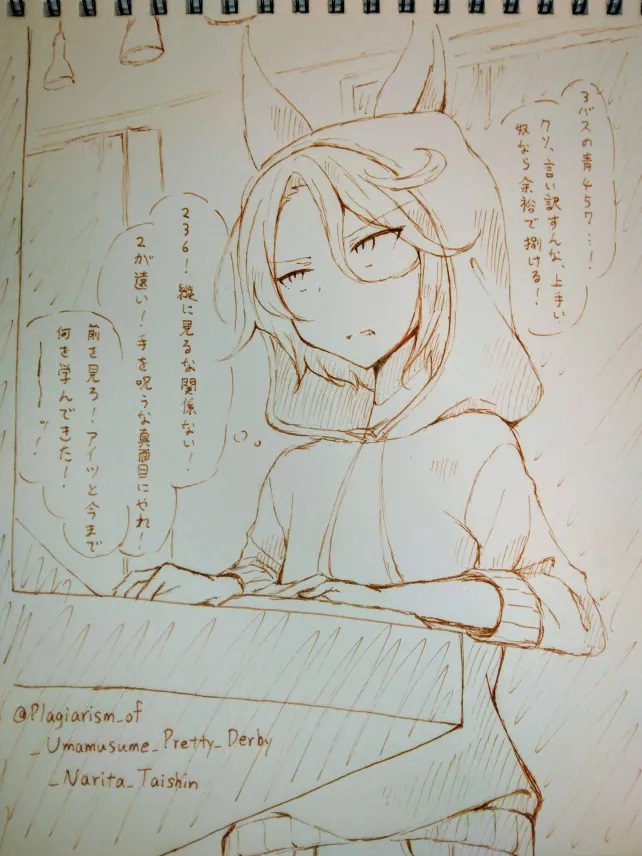 3バスの青457…！
クソ、言い訳すんな、上手い
奴なら余裕で捌ける！
236！縦に見るな関係ない！
2が遠い！手を呪うな真面目にやれ！
前を見ろ！アイツと今まで
何を学んできた！
―――ッ！
@Plagiarism_of
_Umamusume_Pretty_Derby
_Narita_Taishin